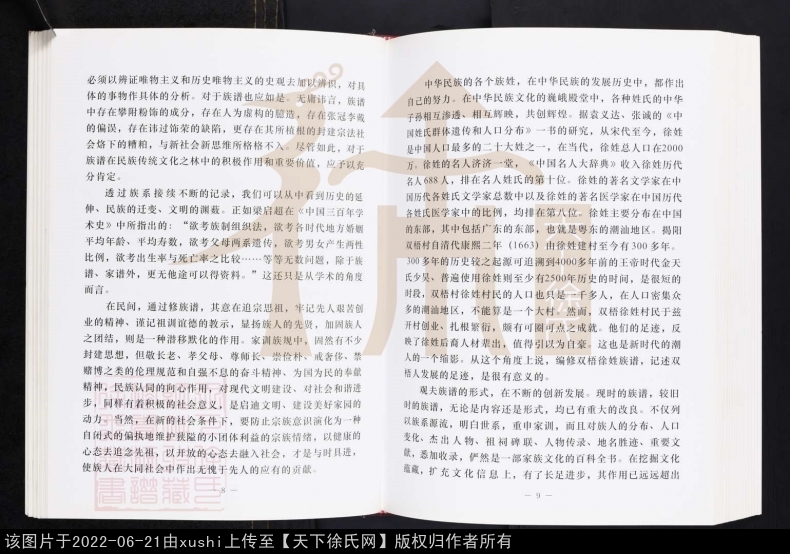 必须以辨证唯物主义和历史唯物主义的史观去加以辨识，对具
体的事物作具体的分析。对于族谱也应如是。无庸讳言，族谱
中存在攀附粉饰的成分，存在人为虚构的臆造，存在张冠李戴
的偏误，存在讳过饰荣的缺陷，更存在其所植根的封建宗法社
会烙下的糟粕，与新社会新思维所格格不入。尽管如此，对于
族谱在民族传统文化之林中的积极作用和重要价值，应予以充
分肯定。
透过族系接续不断的记录，我们可以从中看到历史的延
伸、民族的迁变、文明的渊薮。正如梁启超在《中国三百年学
术史》中所指出的：“欲考族制组织法，欲考各时代地方婚姻
平均年龄、平均寿数，欲考父母两系遗传，欲考男女产生两性
比例，欲考出生率与死亡率之比较……等等无数问题，除于族
谱、家谱外，更无他途可以得资料。”这还只是从学术的角度
而言。
在民间，通过修族谱，其意在追宗思祖，牢记先人艰苦创
业的精神、谨记祖训谊德的教示，显扬族人的先贤，加固族人
之团结，则是一种潜移默化的作用。家训族规中，固然有不少
封建思想，但敬长老、孝父母、尊师长、崇俭朴、戒奢侈、禁
赌博之类的伦理规范和自强不息的奋斗精神、为国为民的奉献
精神，民族认同的向心作用，对现代文明建设、对社会和谐进
步，同样有着积极的社会意义，是启迪文明、建设美好家园的
动力。当然，在新的社会条件下，要防止宗族意识演化为一种
自闭式的偏执地维护狭隘的小团体利益的宗族情绪，以健康的
心态去追念先祖，以开放的心态去融入社会，才是与时具进，
使族人在大同社会中作出无愧于先人的应有的贡献。
— 8 —
中华民族的各个族姓，在中华民族的发展历史中，都作出
自己的努力。在中华民族文化的巍峨殿堂中，各种姓氏的中华
子孙相互渗透、相互辉映，共创辉煌。据袁义达、张诚的《中
国姓氏群体遗传和人口分布》一书的研究，从宋代至今，徐姓
是中国人口最多的二十大姓之一，在当代，徐姓总人口在2000
万。徐姓的名人济济一堂，《中国名人大辞典》收入徐姓历代
名人688人，排在名人姓氏的第十位。徐姓的著名文学家在中
国历代各姓氏文学家总数中以及徐姓的著名医学家在中国历代
各姓氏医学家中的比例，均排在第八位。徐姓主要分布在中国
的东部，其中包括广东的东部，也就是粤东的潮汕地区。揭阳
双梧村自清代康熙二年（1663）由徐姓建村至今有300多年。
300多年的历史较之起源可追溯到4000多年前的王帝时代金天
氏少昊、普遍使用徐姓则至少有2500年历史的时间，是很短的
时段，双梧村徐姓村民的人口也只是一千多人，在人口密集众
多的潮汕地区，不能算是一个大村。然而，双梧徐姓村民于兹
开村创业、扎根繁衍，颇有可圈可点之成就。他们的足迹，反
映了徐姓后裔人材辈出，值得引以为自豪。这也是新时代的潮
人的一个缩影。从这个角度上说，编修双梧徐姓族谱，记述双
梧人发展的足迹，是很有意义的。
观夫族谱的形式，在不断的创新发展。现时的族谱，较旧
时的族谱，无论是内容还是形式，均已有重大的改良。不仅列
以族系源流，明白世系，重申家训，而且对族人的分布、人口
变化、杰出人物、祖祠碑联、人物传录、地名胜迹、重要文
献，悉加收录，俨然是一部家族文化的百科全书。在挖掘文化
蕴藏，扩充文化信息上，有了长足进步，其作用已远远超出
— 9 —
该图片于2022-06-21由xushi上传至【天下徐氏网】版权归作者所有